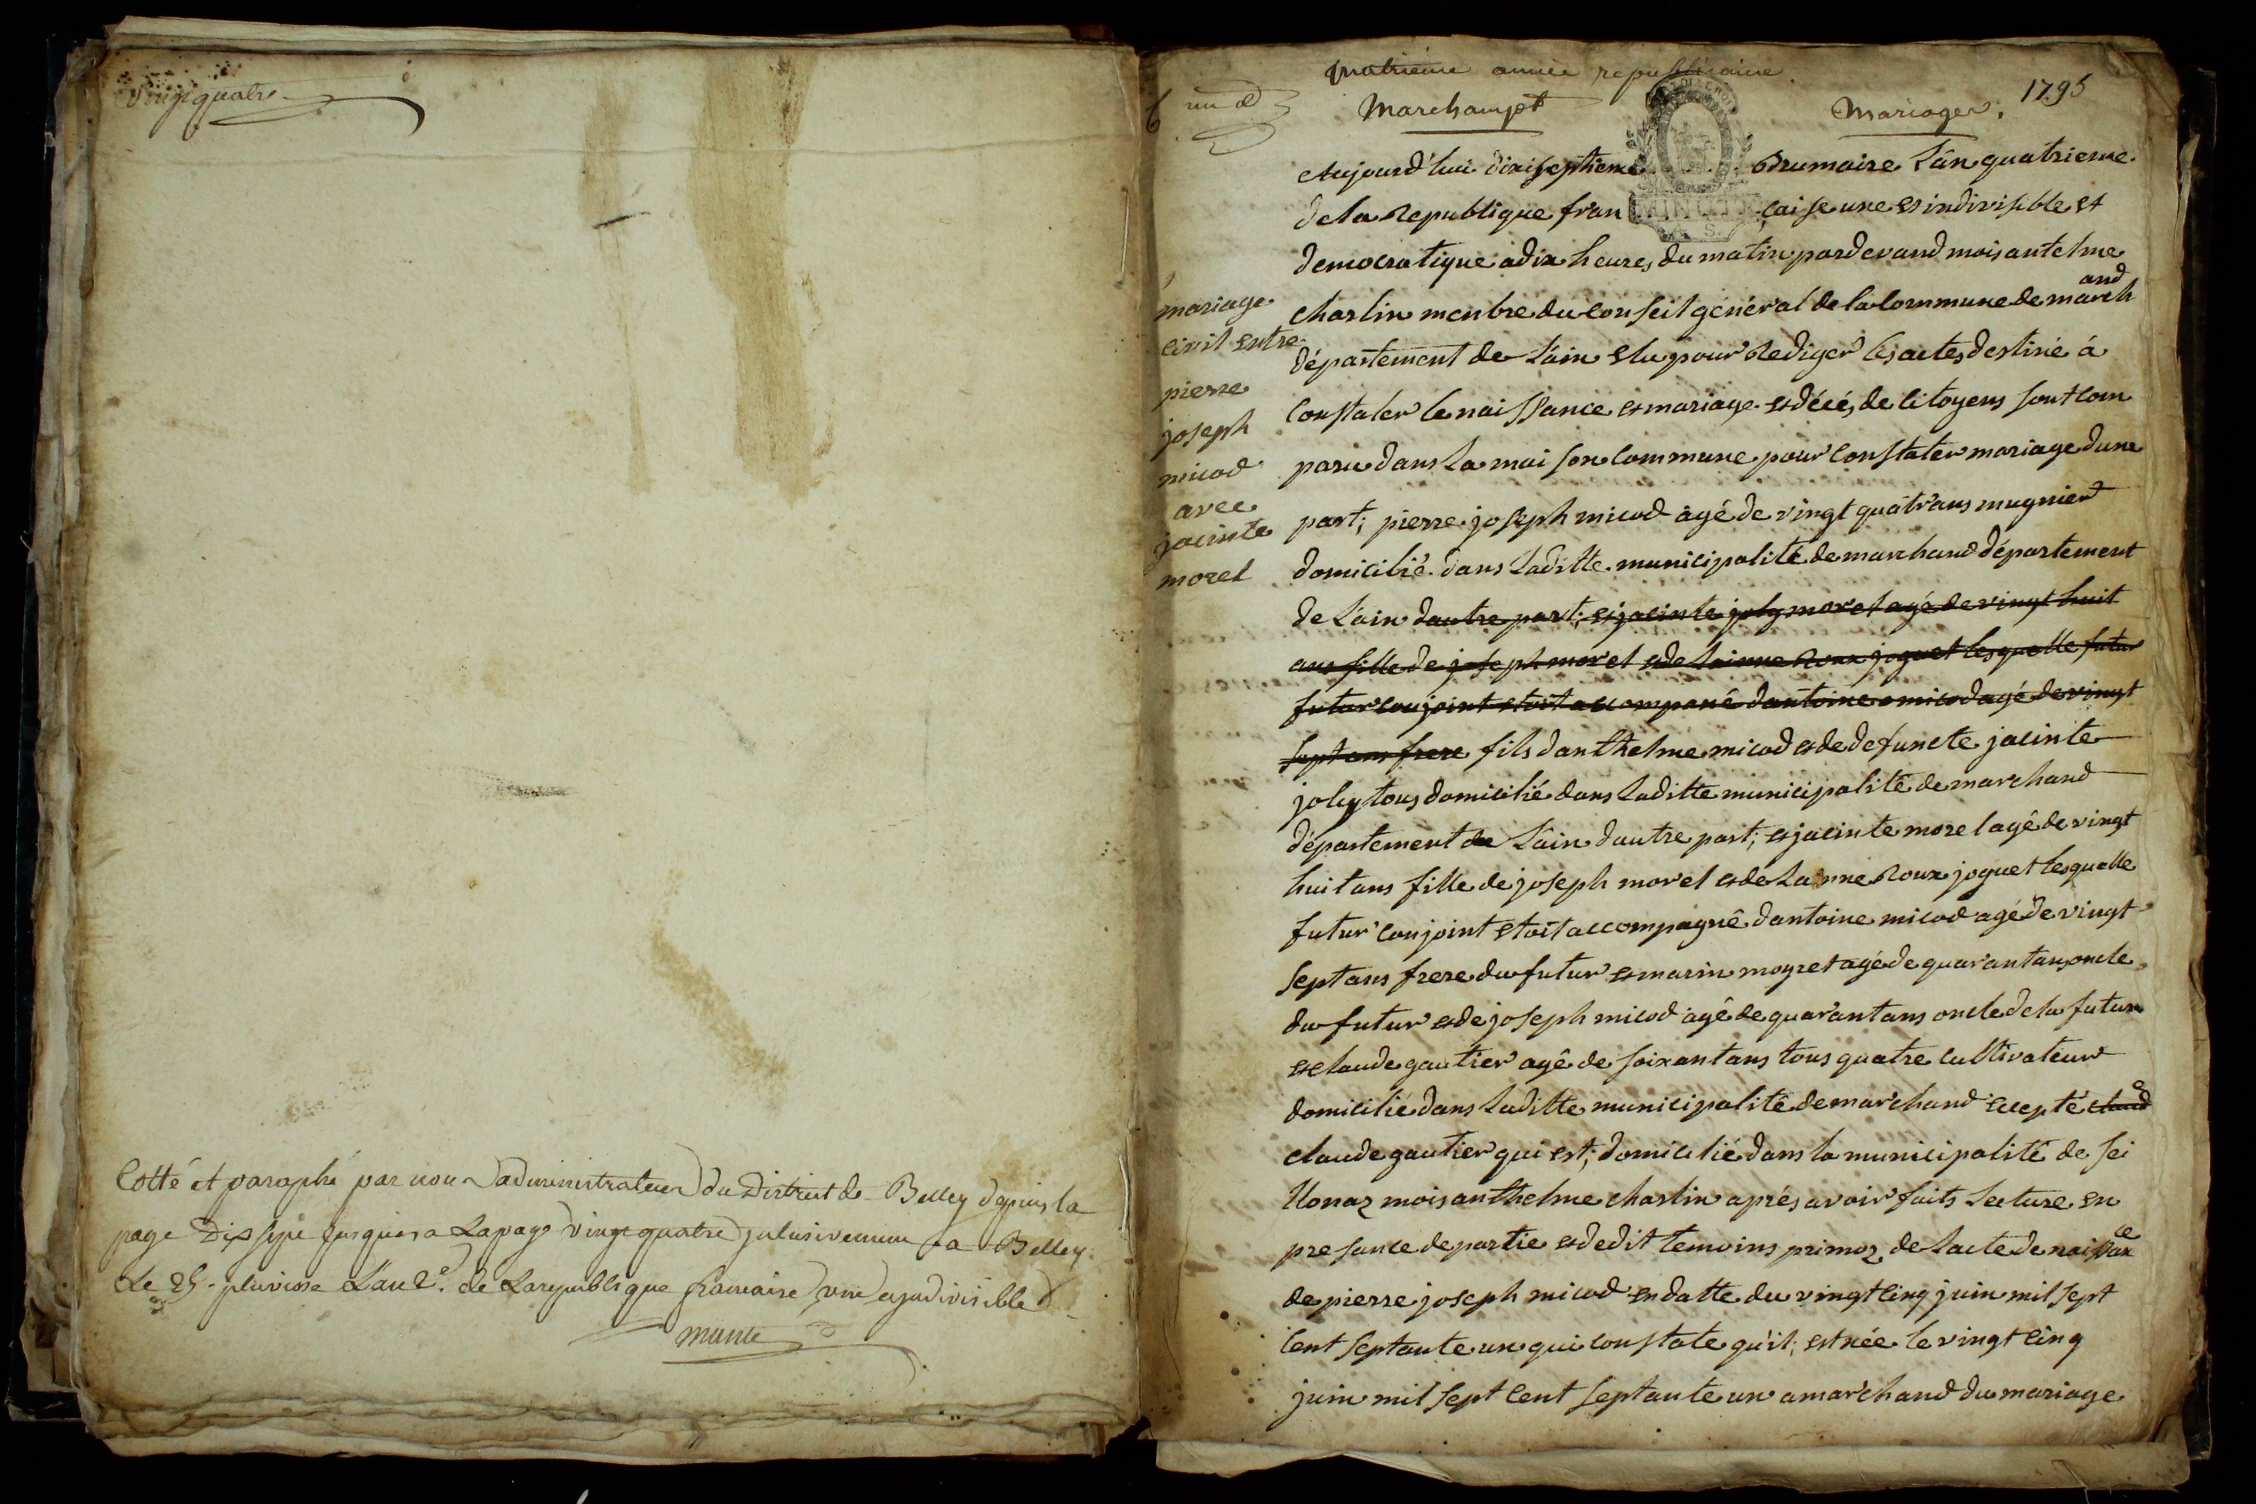 vingt quatre
Cotté et paraphé par nous administrateur du District de Belley depuis la
page Dix sept jusques a La page vingt quatre inclusivement a Belley
Le 25 pluviose L'an 2e. de La republique francaise une et indivisible
quatrieme année republicaine
un
Marchampt
Mariages.
1795
mariage
civil entre
pierre
joseph
micod
avec
jacinte
morel
Aujourd'hui dixiseptieme Brumaire L'an quatrieme
de la Republique fran çaise une et indivisible et
democratique a dix heures du matin pardevand mois antelme
charlin menbre du Conseil général de la Commune de march
and
département de L'ain elu pour Rediger les actes destiné à
Constater le naissance et mariage et décés de Citoyens sont com
paru dans La maison Commune pour Constater mariage dune
part; pierre joseph micod agé de vingt quatr'ans mugnier
domicilié dans Laditte municipalité de marchand département
de L'ain dautre part; et jacinte joly morel agé de vingt huit
ans fille de joseph morel et de Laënne Roux joguet lesquelle futur
futur conjoint etoit accompané dantoine micod agé de vingt
sept ans frere fils danthelme micod et de defuncte jacinte
joly tous domicilié dans Laditte municipalité de marchand
département de L'ain dautre part; et jacinte morel agé de vingt
huit ans fille de joseph morel et de La nne Roux joguet lesquelle
futur conjoint etoit accompagné dantoine micod agé de vingt
sept ans frere du futur et marin moyret agé de quarantans oncle
du futur et de joseph micod agé de quarantans oncle de la future
et claude gautier agé de soixantans tous quatre cultivateur
domicilié dans Laditte municipalité de marchand eccepté claud
claude gautier qui est; domicilié dans la municipalité de sei
llonaz mois anthelme charlin aprés avoir faits Lecture en
presance de partie et de dit temoins primoz de L'acte de naissan
ce
de pierre joseph micod en datte du vingt cinq juin mil sept
Cent septante un qui constate qu'il; est née le vingt cinq
juin mil sept Cent septante un a marchand du mariage